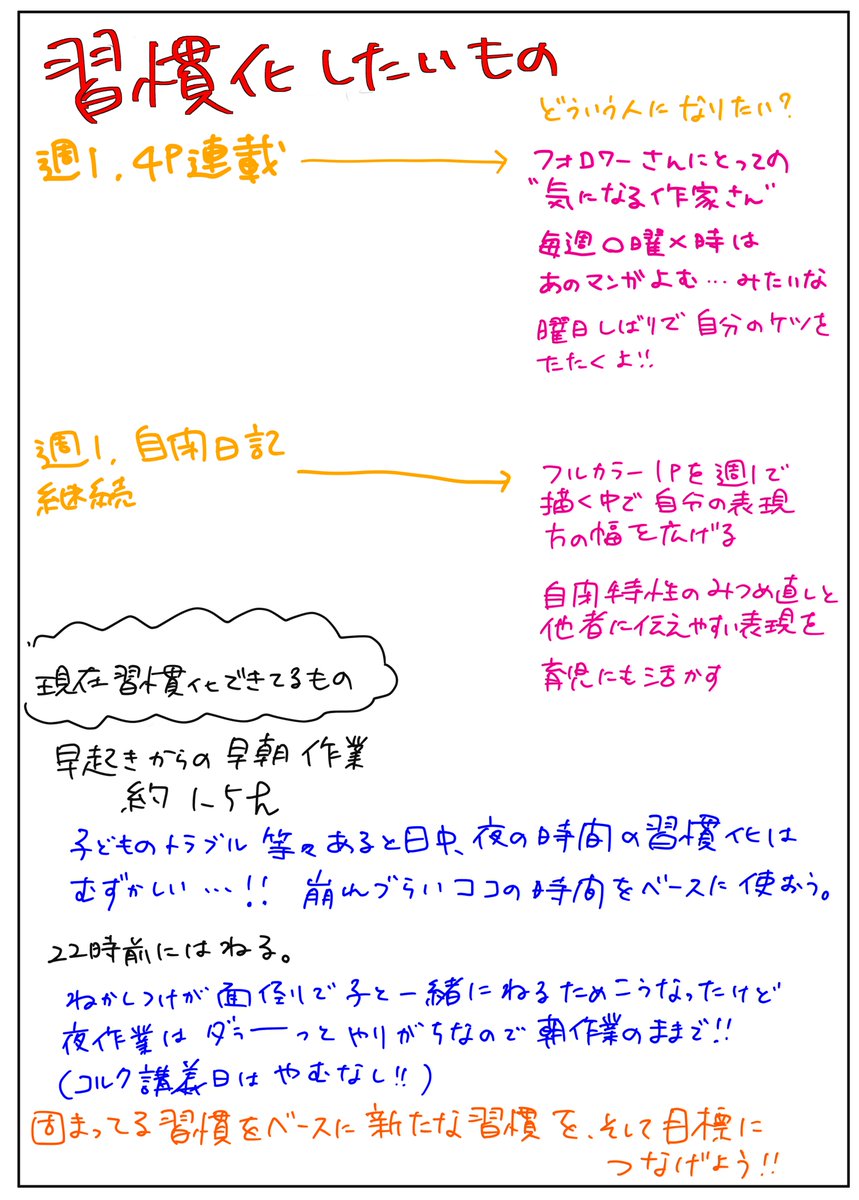 習慣化したいもの
どういう人になりたい?
週1,4P連載
フォロワーさんにとっての
"気になる作家さん"
毎週〇曜×時は
あのマンガよむ…みたいな
曜日しばりで自分のケツを
たたくよ!!
週1,自閉日記
継続
フルカラー1Pを週1で
描く中で自分の表現
方の幅を広げる
自閉特性のみつめ直しと
他者に伝えやすい表現を
育児にも活かす
現在習慣化できてるもの
早起きからの早朝作業
約1.5h
子どものトラブル等々あると日中、夜の時間の習慣化は
むずかしい…!! 崩れづらいココの時間をベースに使おう。
22時前にはねる。
ねかしつけが面倒で子と一緒にねるためこうなったけど
夜作業はダラーっとやりがちなので朝作業のままで!!
(コルク講義日はやむなし!!)
固まってる習慣をベースに新たな習慣を、そして目標に
つなげよう!!